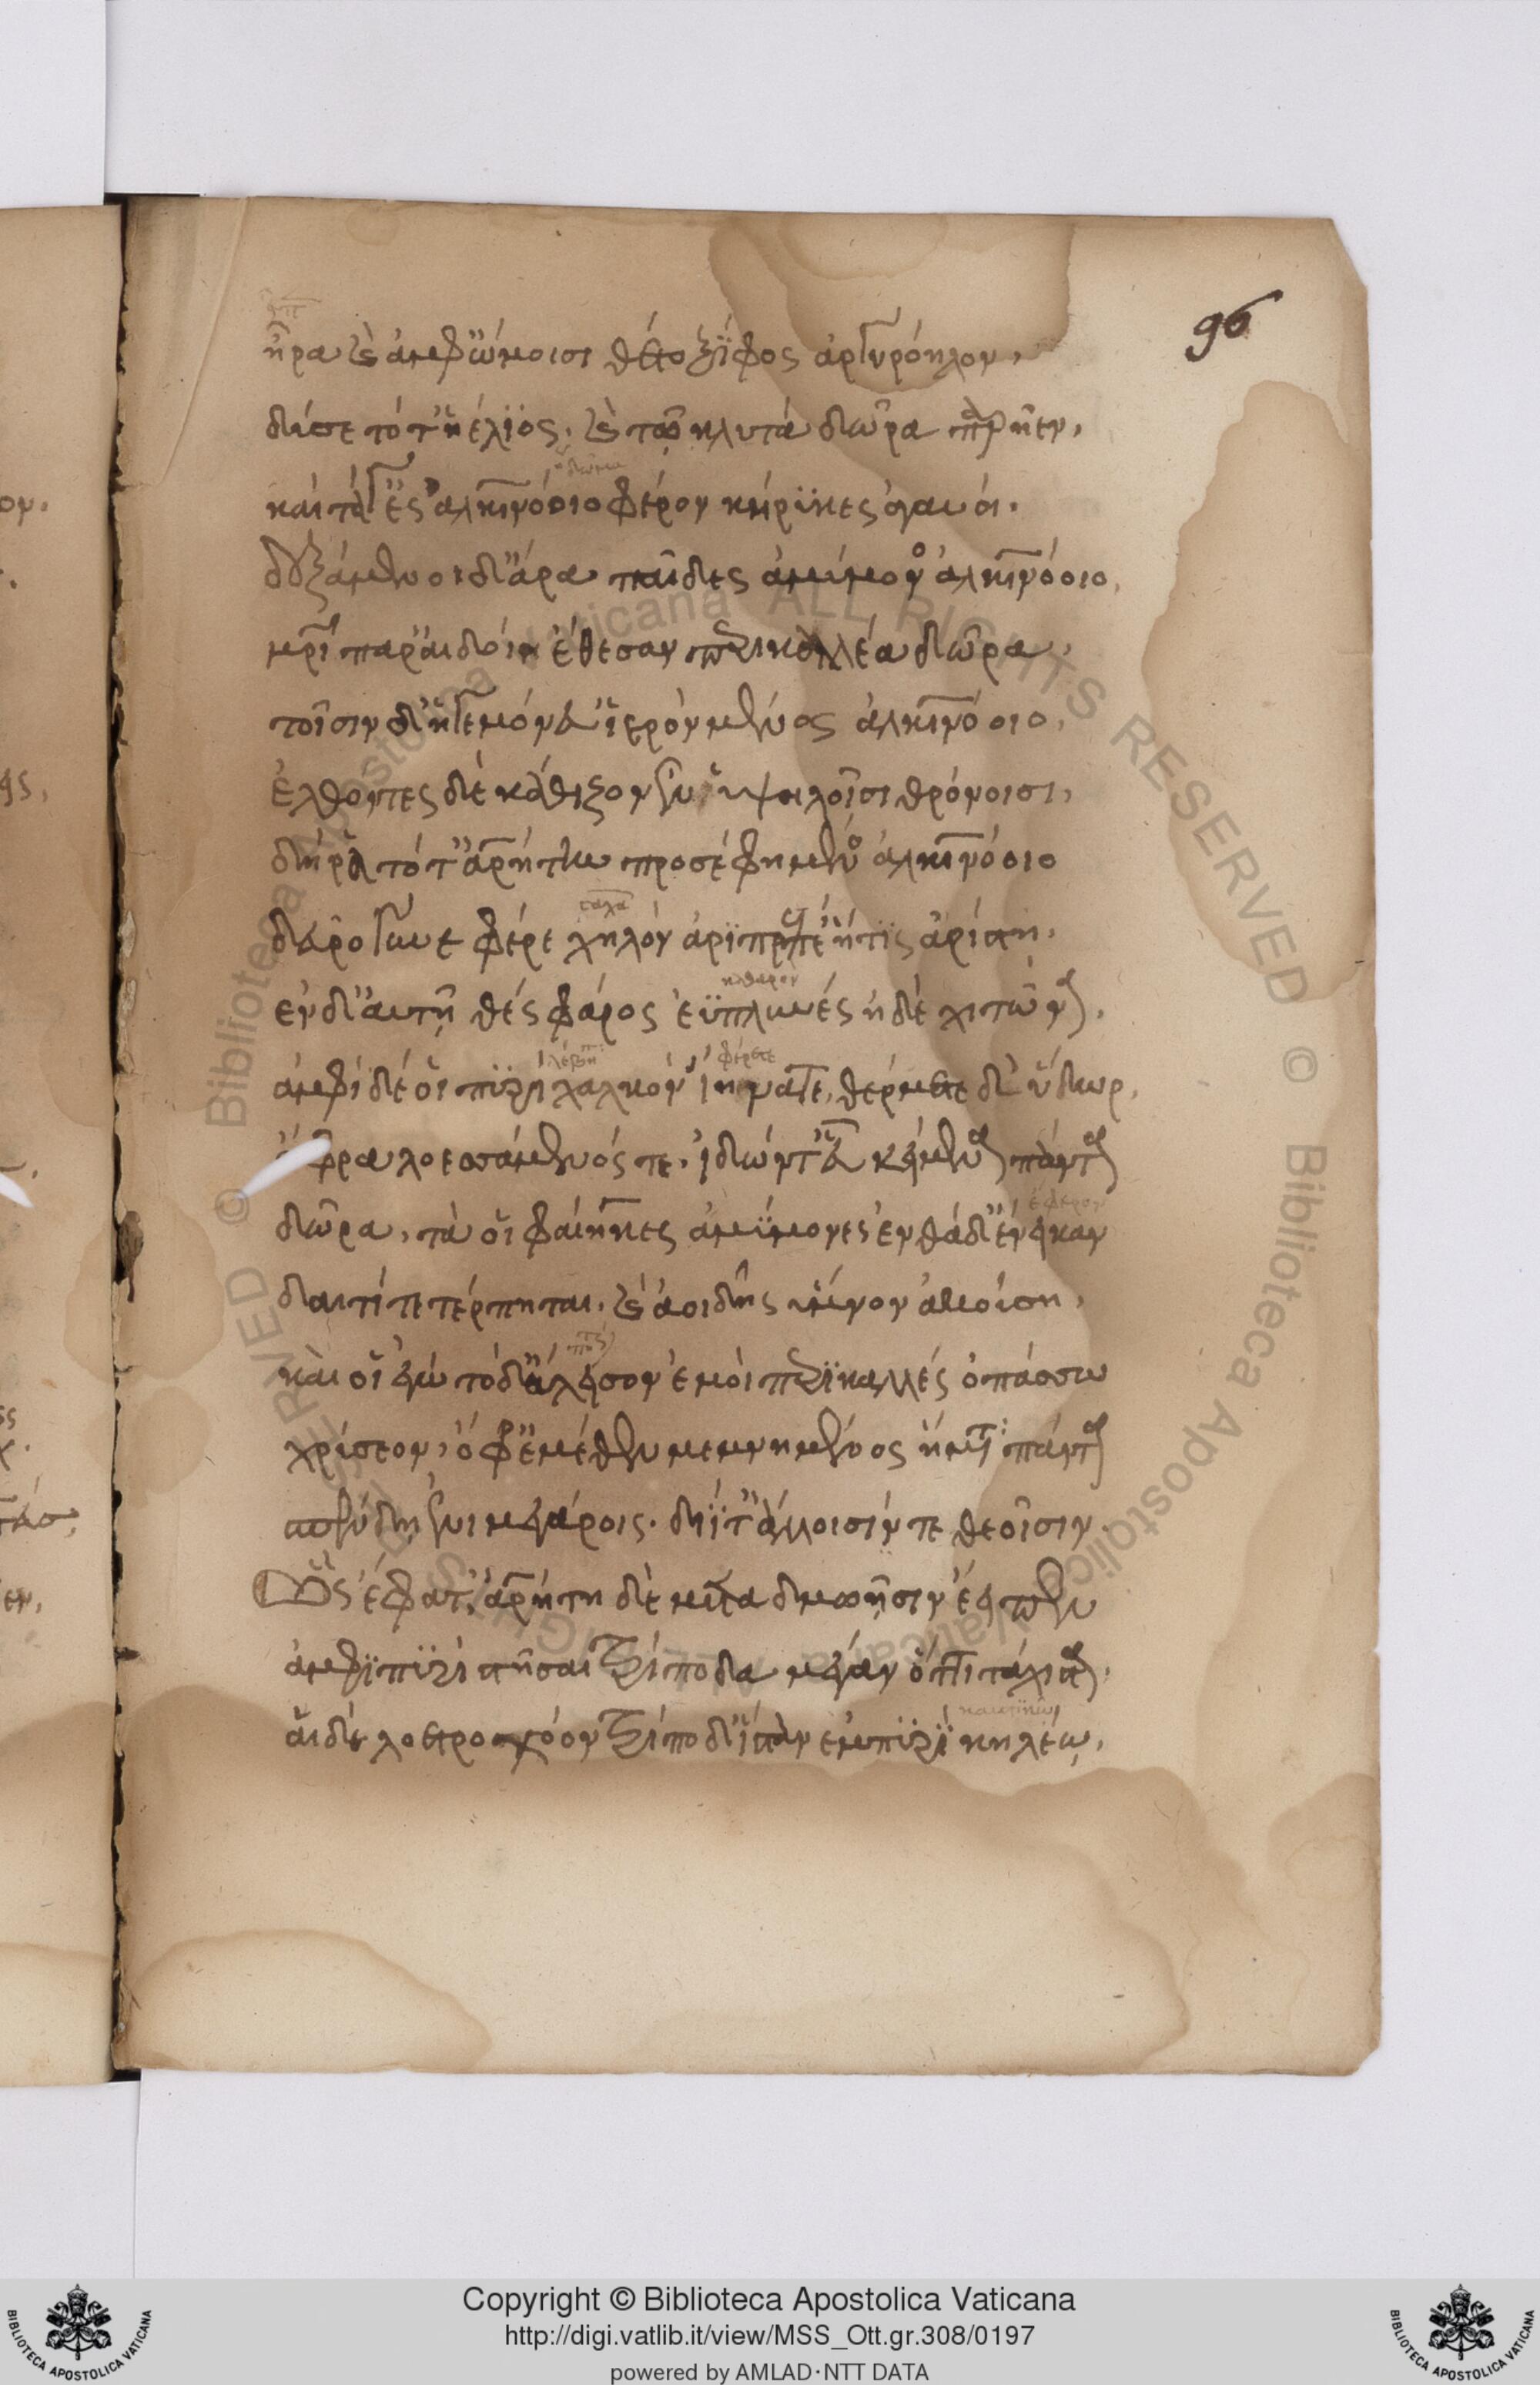 96
ἦρα καὶ ἀμφ' ὤμοισι θέτο ξίφος ἀργυρόηλον,
δύσετό τ' ἠέλιος. καὶ τῶ κλυτὰ δῶρα παρῆεν,
καὶ τάγ' ἐς ἀλκινόοιο φέρον κήρυκες ἀγαυοί.
δεξάμενοι δ' ἄρα παῖδες ἀμύμονος ἀλκινόοιο,
μητρὶ παρ' αἰδοίη ἔθεσαν περικαλλέα δῶρα,
τοῖσιν δ' ἡγεμόνευ' ἱερὸν μένος ἀλκινόοιο,
ἐλθόντες δὲ κάθιζον ἐν ὑψηλοῖσι θρόνοισι,
δή ῥα τότ' ἀρήτην προσέφη μένος ἀλκινόοιο
δεῦρο γύναι φέρε χηλὸν ἀριπρεπέ' ἥτις ἀρίστη,
ἐν δ' αὐτῇ θὲς φάρος ἐϋπλυνὲς ἠδὲ χιτῶνα.
ἀμφὶ δέ οἱ πυρὶ χαλκὸν ἰήνατε, θέρμετε δ' ὕδωρ,
ὄφρα λοεσσάμενός τε, ἰδών τ' εὖ κείμενα πάντα
δῶρα, τά οἱ φαίηκες ἀμύμονες ἐνθάδ' ἔνεικαν
δαιτί τε τέρπηται, καὶ ἀοιδῆς ὕμνον ἀκούων,
καί οἱ ἐγὼ τόδ' ἄλεισον ἐμὸν περικαλλὲς ὀπάσσω
χρύσεον, ὄφρ' ἐμέθεν μεμνημένος ἤματα πάντα
σπένδη ἐνὶ μεγάροις. διΐ τ' ἄλλοισίν τε θεοῖσιν.
Ὣς ἔφατ', ἀρήτη δὲ μετὰ δμωῆσιν ἔειπεν
ἀμφὶ πυρὶ στῆσαι τρίποδα μέγαν ὅττι τάχιστα.
αἱ δὲ λοετροχόον τρίποδ' ἵστασαν ἐν πυρὶ κηλέῳ,
Copyright © Biblioteca Apostolica Vaticana
http://digi.vatlib.it/view/MSS_Ott.gr.308/0197
powered by AMLAD·NTT DATA